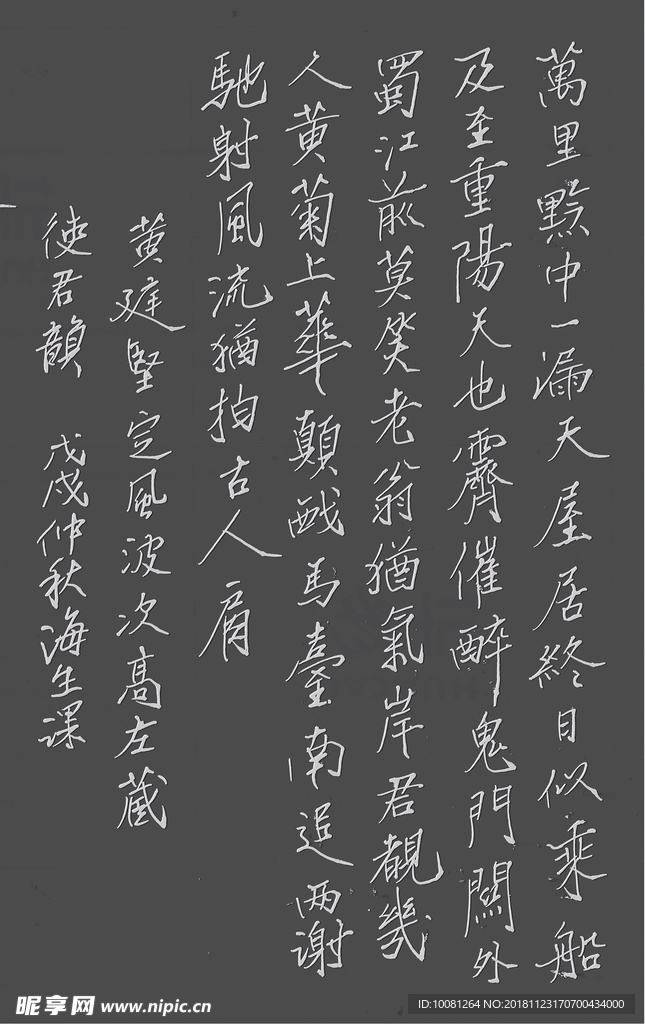 萬里黔中一漏天屋居終日似乘船
及至重陽天也霽催醉鬼門關外
蜀江前莫笑老翁猶氣岸君觀幾
人黄菊上華顛戲馬臺南追兩謝
馳射風流猶拍古人肩
黄庭堅定風波次高左藏
使君韻 戊戌仲秋海生課
昵享网 www.nipic.cn
ID:10081264 NO:20181123170700434000